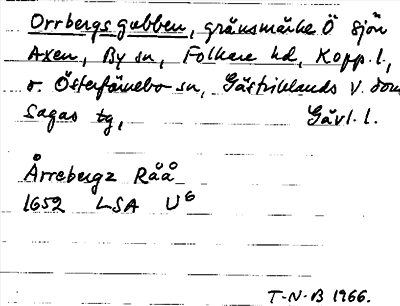 Orrbergsgubben, gränsmärke Ö sjön
Axen, By sn, Folkare hd, Kopp. l.,
o. Österfärnebo sn, Gästriklands V. dom
sagas tg, Gävl. l.
Årrebergz Råå
1652 LSA U6
T-N-B 1966.